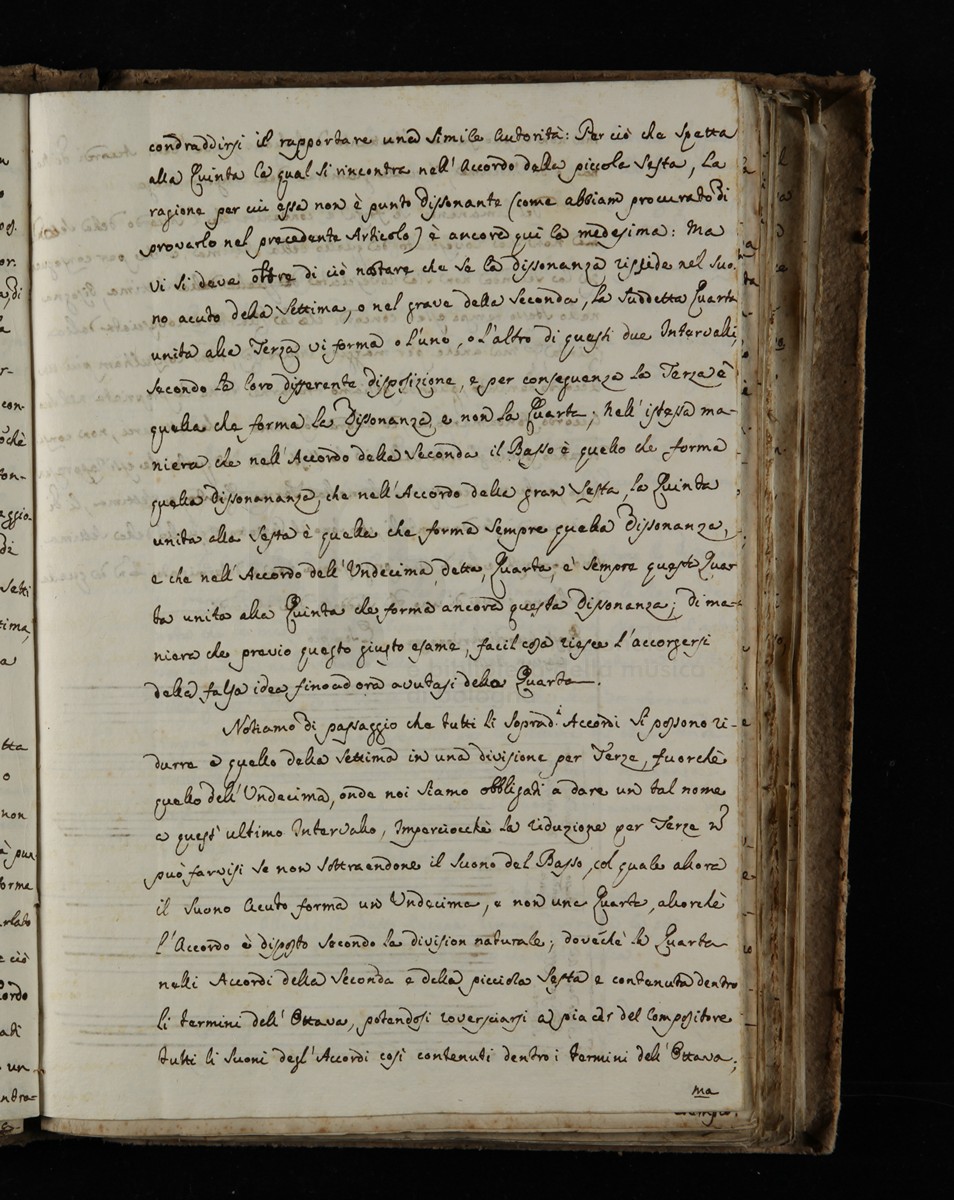 condraddirsi il rapportare una simile autorità: Per ciò che spetta
alla Quinta la qual si rincontra nell'Accordo della piccola Sesta, la
ragione per cui essa non è punto Dissonante (come abbiam procurato di
provarlo nel precedente Articolo) è ancora qui la medesima: Ma
vi si deve oltre di ciò notare che se la dissonanza rissede nel Suo-
no acuto della Settima, o nel grave della Seconda, la suddetta Quarta
unita alla Terza vi forma o l'uno, o l'altro di questi due Intervalli,
secondo la loro differente disposizione, e per conseguenza la Terza è
quella che forma la Dissonanza e non la Quarta; Nell'istessa ma-
niera che nell'Accordo della Seconda il Basso è quello che forma
quella dissonananza, che nell'Accordo della gran Sesta, la Quinta
unita alla Sesta è quella che forma sempre quella Dissonanza,
e che nell'Accordo dell'Undecima detta Quarta, è sempre questa Quar
ta unita alla Quinta che forma ancora questa Dissonanza; di ma-
niera che previo questo giusto esame, facil cosa riesce l'accorgersi
della falsa idea finoad ora avutasi della Quarta.
Notiamo di passaggio che tutti li soprad.i Accordi si possono ri-
durre a quello della Settima in una divisione per Terze, fuorchè
quello dell'Undecima, onde noi siamo obbligati a dare un tal nome
a quest'ultimo Intervallo, Imperciocchè la riduzione per Terze
può farvisi se non sottraendone il Suono del Basso, col quale allora
il Suono Acuto forma un Undecima, e non una Quarta, allorchè
l'Accordo è disposto secondo la division naturale; dovechè la Quarta
nelli Accordi della Seconda e della picciola Sesta e contenuta dentro
li termini dell'Ottava, potendosi roversciarsi a piacer del Compositore
tutti li Suoni degl'Accordi così contenuti dentro i termini dell'Ottava;
ma